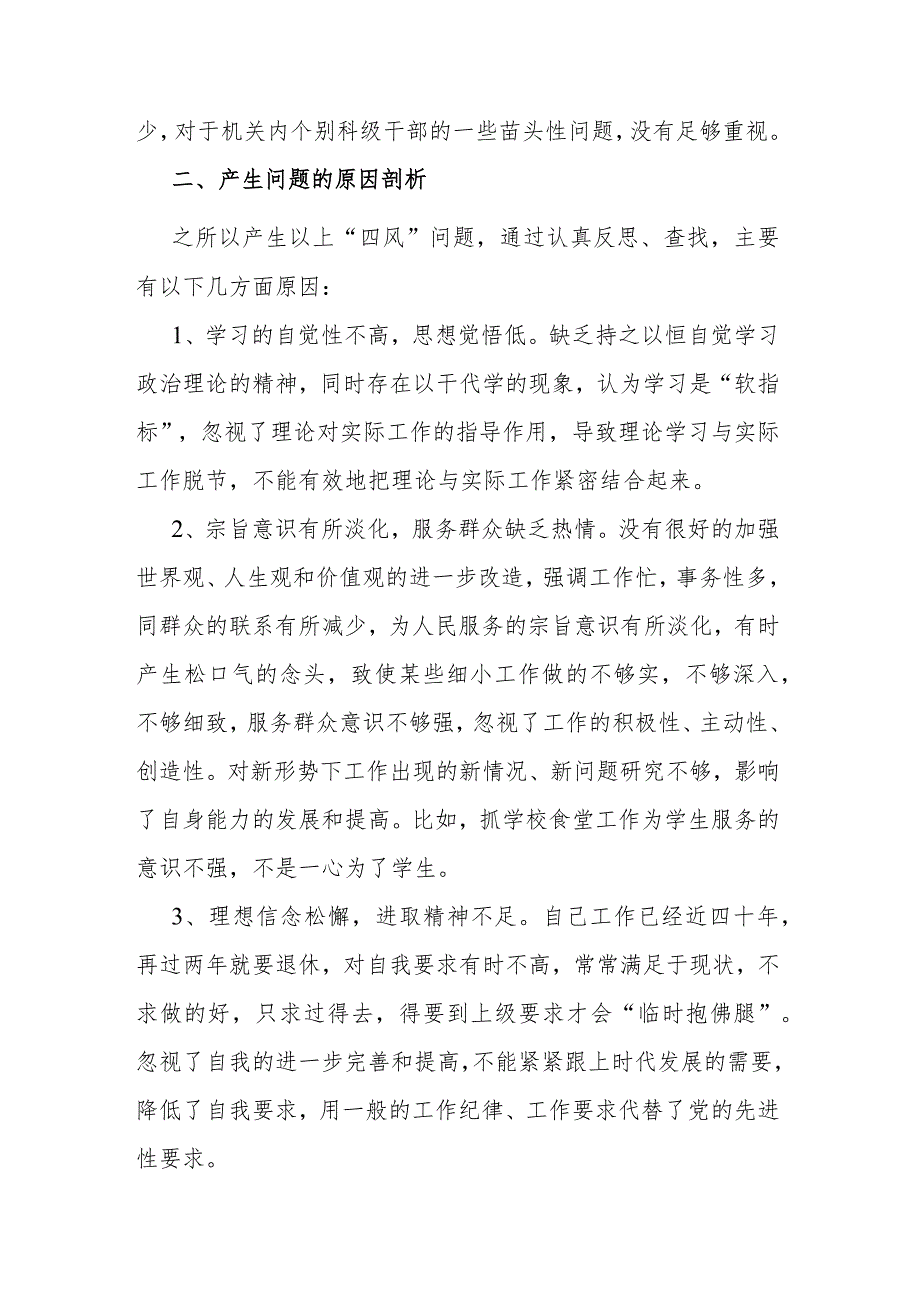 少，对于机关内个别科级干部的一些苗头性问题，没有足够重视。
二、产生问题的原因剖析
之所以产生以上“四风”问题，通过认真反思、查找，主要
有以下几方面原因：
1、学习的自觉性不高，思想觉悟低。缺乏持之以恒自觉学习
政治理论的精神，同时存在以干代学的现象，认为学习是“软指
标”，忽视了理论对实际工作的指导作用，导致理论学习与实际
工作脱节，不能有效地把理论与实际工作紧密结合起来。
2、宗旨意识有所淡化，服务群众缺乏热情。没有很好的加强
世界观、人生观和价值观的进一步改造，强调工作忙，事务性多，
同群众的联系有所减少，为人民服务的宗旨意识有所淡化，有时
产生松口气的念头，致使某些细小工作做的不够实，不够深入，
不够细致，服务群众意识不够强，忽视了工作的积极性、主动性、
创造性。对新形势下工作出现的新情况、新问题研究不够，影响
了自身能力的发展和提高。比如，抓学校食堂工作为学生服务的
意识不强，不是一心为了学生。
3、理想信念松懈，进取精神不足。自己工作已经近四十年，
再过两年就要退休，对自我要求有时不高，常常满足于现状，不
求做的好，只求过得去，得要到上级要求才会“临时抱佛腿”。
忽视了自我的进一步完善和提高，不能紧紧跟上时代发展的需要，
降低了自我要求，用一般的工作纪律、工作要求代替了党的先进
性要求。